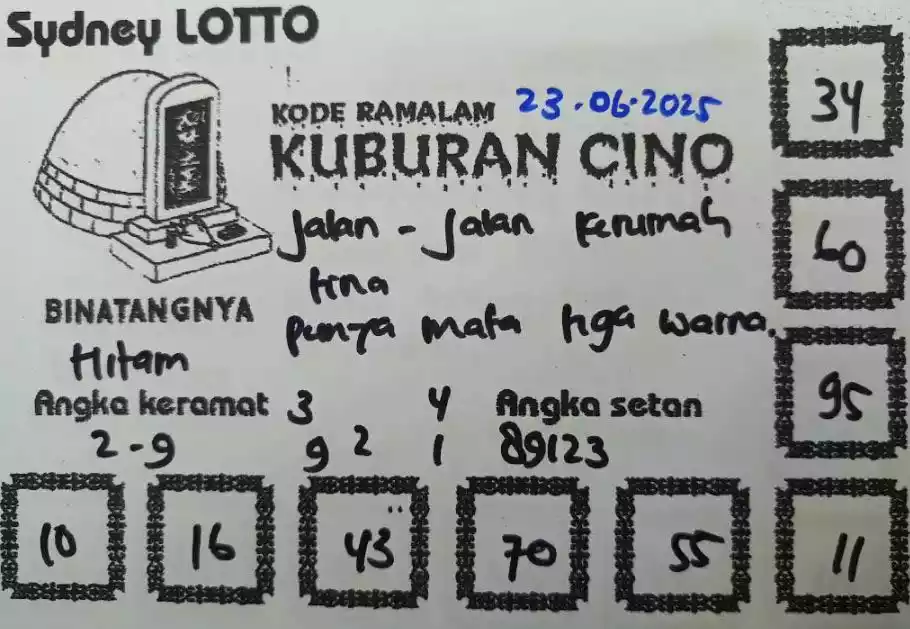 Sydney LOTTO
KODE RAMALAM 23.06.2025
KUBURAN CINO
Jalan - Jalan kerumah
tina
punya mata tiga warna.
BINATANGNYA
Hitam
Angka keramat 3 4 Angka setan
2-9 9 2 1 89123
34
60
95
10 16 43 70 55 11